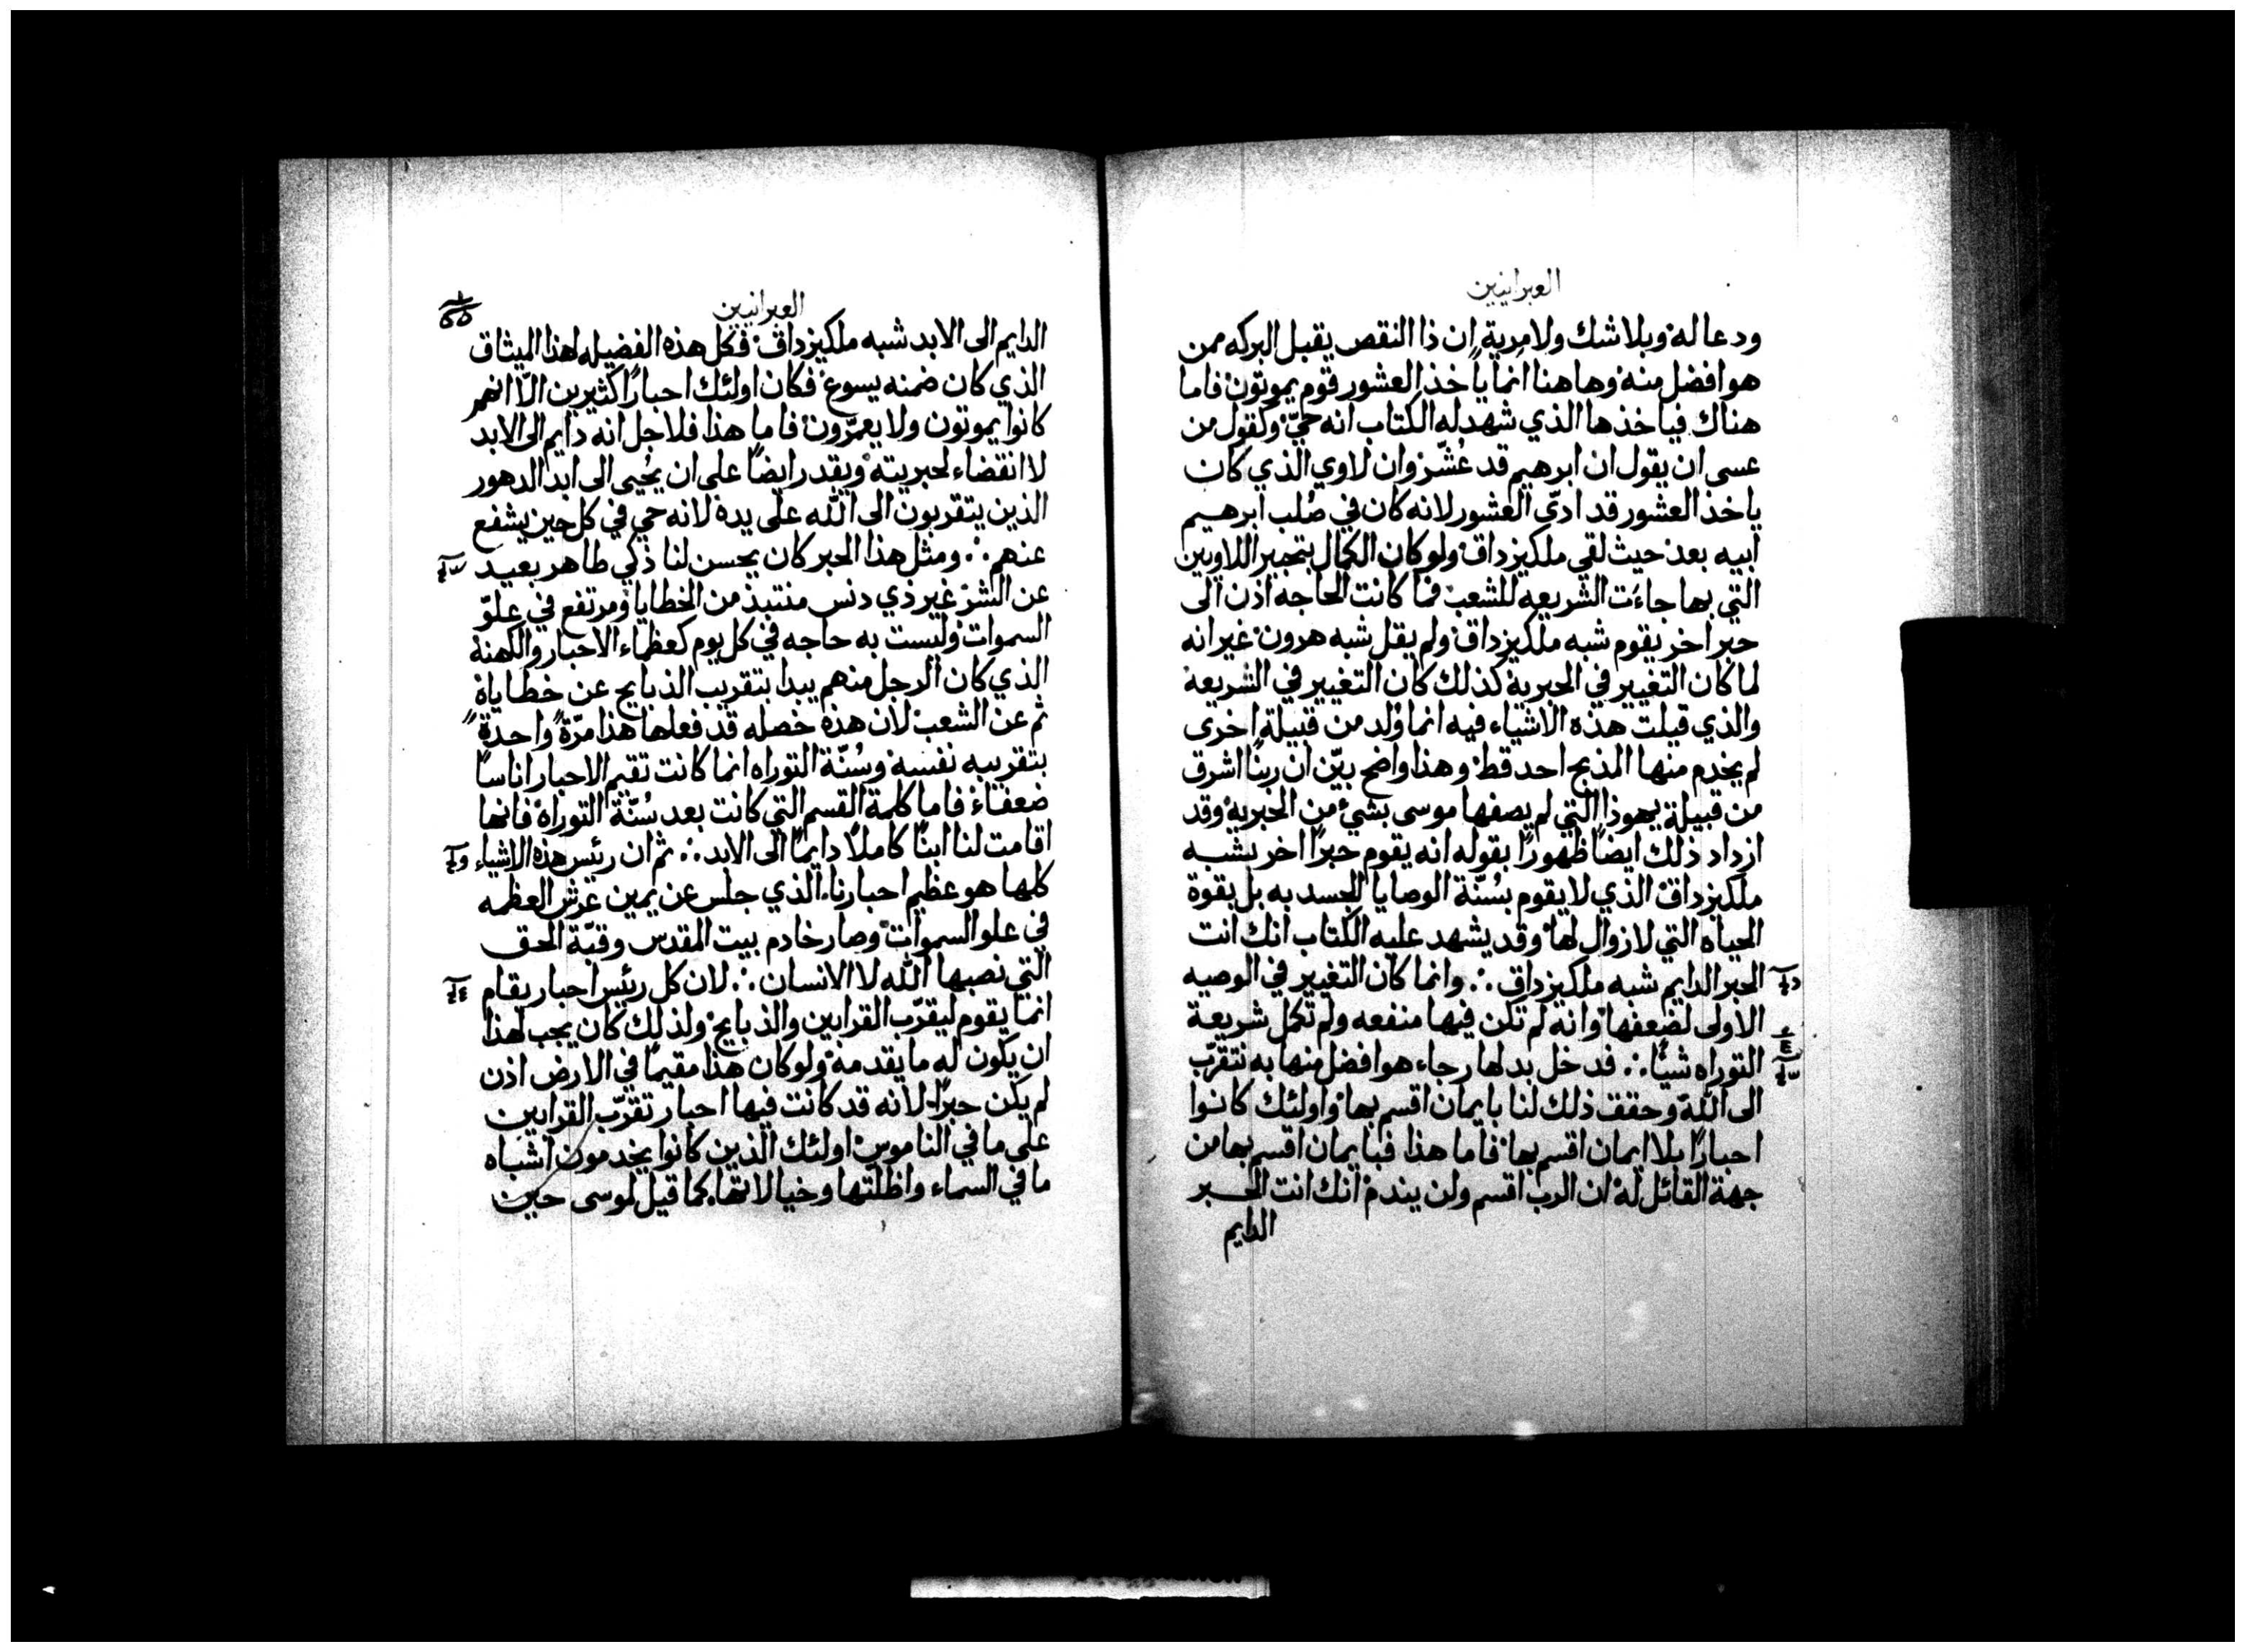 العبرانيين
ودعا له وبلا شك ولا مرية ان ذا النقص يقبل البركه ممن
هو افضل منه وها هنا انما ياخذ العشور قوم يموتون فاما
هناك فياخذها الذي شهد له الكتاب انه حيّ وكقول من
عسى ان يقول ان ابرهيم قد عُشّر وان لاوي الذي كان
ياخذ العشور قد ادّى العشور لانه كان في صُلب ابرهيم
ابيه بعد حيث لقي ملكيزداق ولو كان الكمال بتحبر اللاويين
التي بها جاءت الشريعه للشعب فما كانت الحاجه اذن الى
حبر اخر يقوم شبه ملكيزداق ولم يقل شبه هرون غير انه
لما كان التغيير في الحبرية كذلك كان التغيير في الشريعة
والذي قيلت هذه الاشياء فيه انما وُلد من قبيلة اخرى
لم يخدم منها المذبح احد قط وهذا واضح بيّن ان ربنا اشرق
من قبيلة يهوذا التي لم يصفها موسى بشيء من الحبرية وقد
ازداد ذلك ايضاً ظهورًا بقوله انه يقوم حبرًا اخر يشبه
ملكيزداق الذي لا يقوم بسُنّة الوصايا الجسديه بل بقوة
الحياه التي لا زوال لها وقد يشهد عليه الكتاب انك انت
الحبر الدايم شبه ملكيزداق ∴ وانما كان التغيير في الوصيه
الاولى لضعفها وانه لم تكن فيها منفعه ولم تكمل شريعة
التوراه شيًا ∴ فدخل بدلها رجاء هو افضل منها به نتقرّب
الى الله وحقق ذلك لنا بايمان اقسم بها واولئك كانوا
احبارًا بلا ايمان اقسم بها فاما هذا فبايمان اقسم بها من
جهة القائل له ان الرب اقسم ولن يندم انك انت الحبر
الدايم
العبرانيين
الدايم الى الابد شبه ملكيزداق فكل هذه الفضيله لهذا الميثاق
الذي كان ضمنه يسوع فكان اولئك احبارًا كثيرين الّا انهم
كانوا يموتون ولا يعمّرون فاما هذا فلاجل انه دايم الى الابد
لا انقضاء لحبريته ويقدر ايضًا على ان يُحيى الى ابد الدهور
الذين يتقربون الى الله على يده لانه حي في كل حين يشفع
عنهم ∴ ومثل هذا الحبر كان يحسن لنا ذكي طاهر بعيد
عن الشر غير ذي دنس منتبذ من الخطايا ومرتفع في علوّ
السموات وليست به حاجه في كل يوم كعظماء الاحبار والكهنة
الذي كان الرجل منهم يبدا بتقريب الذبايح عن خطاياه
ثم عن الشعب لان هذه خصله قد فعلها هذا مرّةً واحدةً
بتقريبه نفسه وسُنّة التوراه انما كانت تقيم الاحبار اناسًا
ضعفاء فاما كلمة القسم التي كانت بعد سُنّة التوراة فانها
اقامت لنا ابنًا كاملًا دايمًا الى الابد ∴ ثم ان رئيس هذه الاشياء
كلها هو عظيم احبارنا الذي جلس عن يمين عرش العظمه
في علو السموات وصار خادم بيت المقدس وقبّة الحق
التي نصبها الله لا الانسان ∴ لان كل رئيس احبار يقام
انما يقوم ليقرّب القرابين والذبايح ولذلك كان يجب لهذا
ان يكون له ما يقدمه ولو كان هذا مقيمًا في الارض اذن
لم يكن حبرًا لانه قد كانت فيها احبار تقرّب القرابين
على ما في الناموس اولئك الذين كانوا يخدمون اشباه
ما في السماء واظلتها وخيالاتها كما قيل لموسى حين